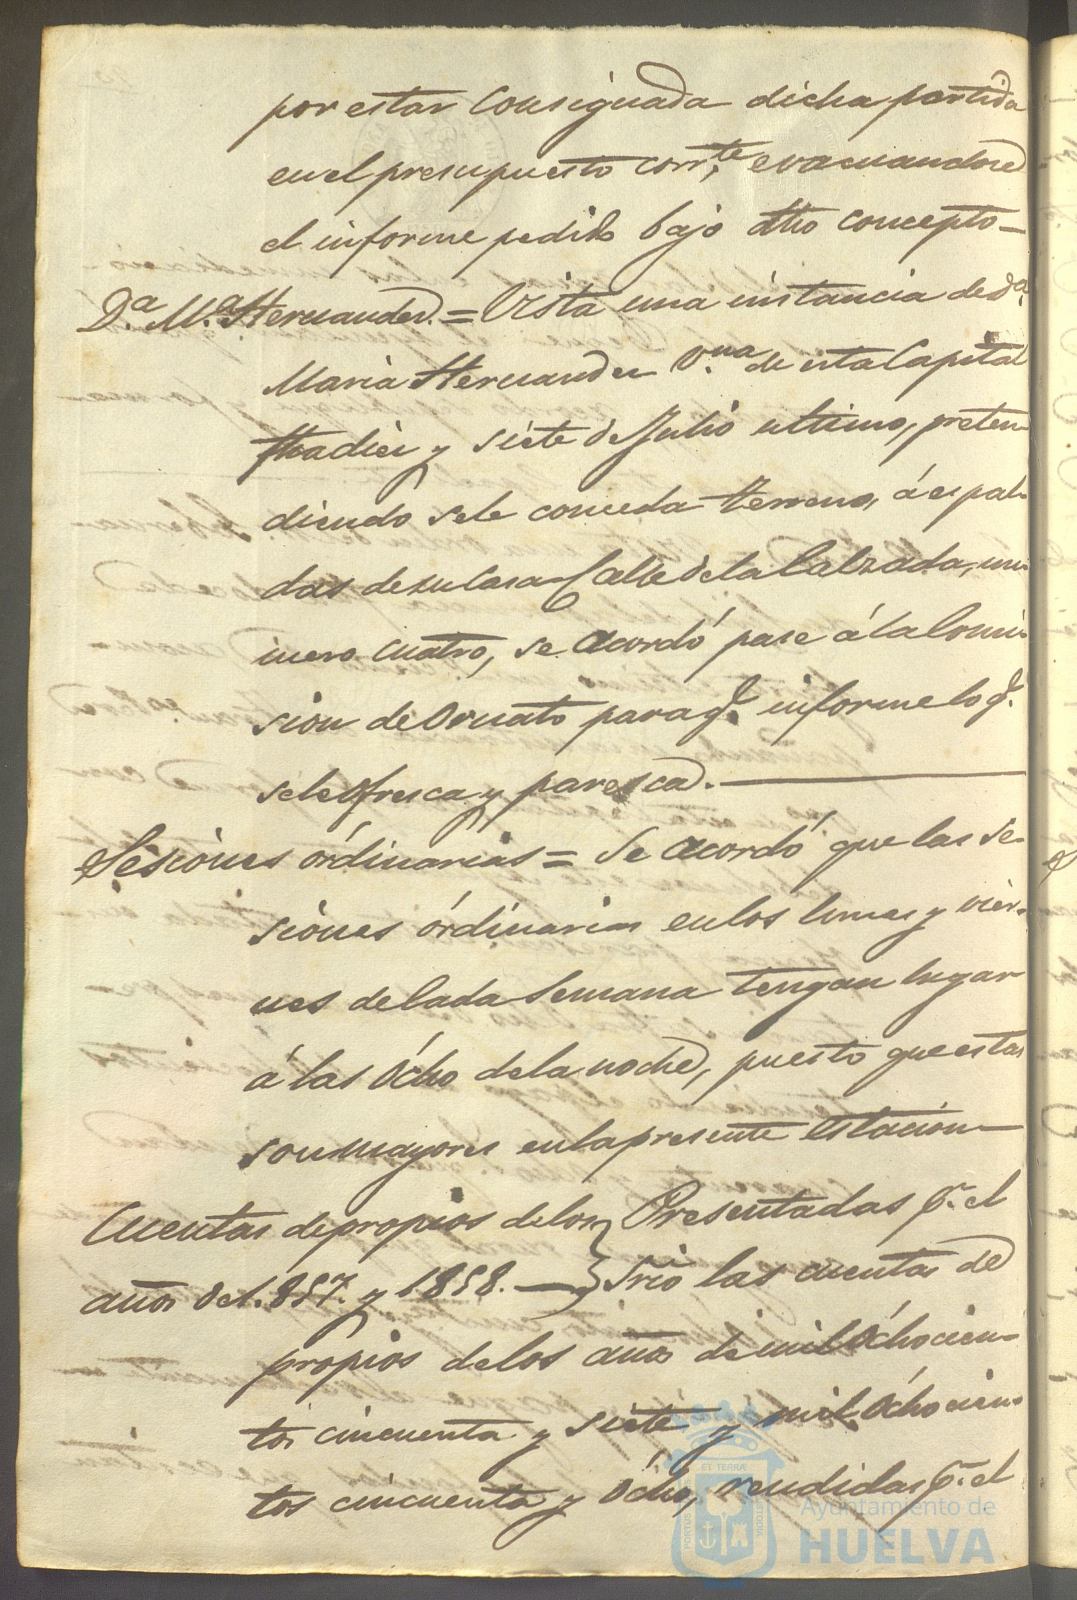 por estar Consignada dicha partida
en el presupuesto corr.te evacuandose
el informe pedido bajo dho concepto —
D.a M.a Hernandez. = Vista una instancia de D.a
Maria Hernandez v.na de esta Capital
fha diez y siete de Julio ultimo, preten-
diendo se le conceda terreno, á espal-
das de su Casa Calle de la Calzada, nu-
mero cuatro, se acordó pase á la Comi-
sion de Ornato para q.e informe lo q.e
se le ofresca y paresca. —
Sesiónes órdinarias = Se acordó que las se-
siónes órdinarias en los lunes y vier-
nes de Cada Semana tengan lugar
á las ócho de la noche, puesto que estas
son mayores en la presente estación —
Cuentas de propios de los } Presentadas p.r el
años de 1.857. y 1858. — } Srio las cuentas de
propios de los años de mil óchocien-
tos cincuenta y siete y mil óchocien-
tos cincuenta y ócho, rendidas p.r el
ET TERRÆ
PORTUS
CUSTODIA
Ayuntamiento de
HUELVA